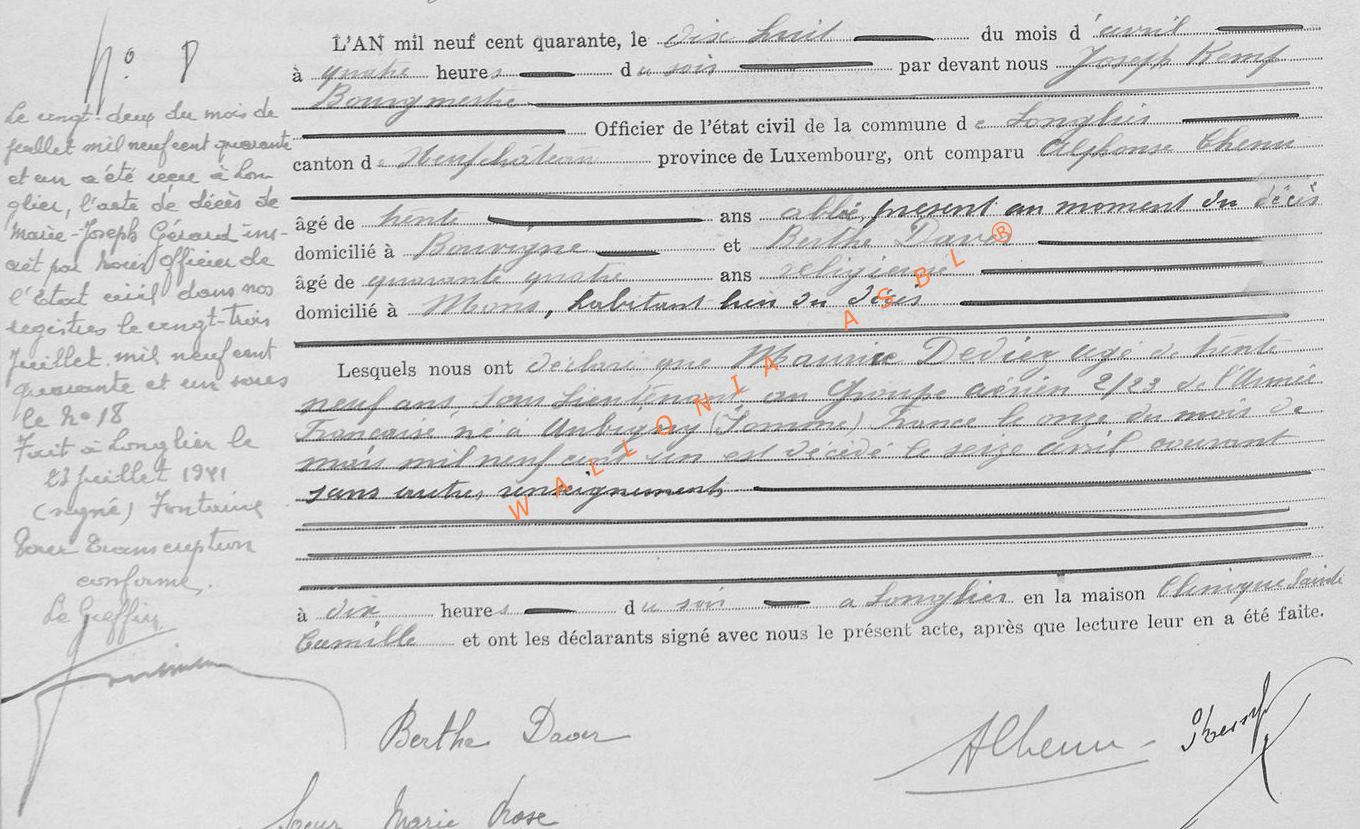 N° D
Le vingt-deux du mois de
juillet mil neuf cent quarante
et un a été reçu à Lon
glier, l'acte de décès de
Marie-Joseph Gérard ins-
crit par nous officier de
l'état civil dans nos
registres le vingt-trois
juillet mil neuf cent
quarante et un sous
le N° 18
Fait à Longlier le
23 juillet 1941
(signé) Fontaine
Pour transcription
conforme,
Le Greffier
L'AN mil neuf cent quarante, le dix huit du mois d'avril
à quatre heures du soir par devant nous Joseph Kemp
Bourgmestre
Officier de l'état civil de la commune de Longlier
canton de Neufchâteau province de Luxembourg, ont comparu Alphonse Chenu
âgé de trente ans abbé, présent au moment du décès
domicilié à Bouvigne et Berthe Daver
âgé de quarante quatre ans religieuse
domicilié à Mons, habitant lieu du décès
Lesquels nous ont déclaré que Maurice Dedier agé de trente
neuf ans, sous Lieutenant au Groupe aérien 2/23 de l'Armée
Française né à Aubigny (Somme) France le onze du mois de
mars mil neuf cent un est décédé le seize avril courant
sans autres renseignements
à dix heures du soir a Longlier en la maison Clinique Sainte
Camille et ont les déclarants signé avec nous le présent acte, après que lecture leur en a été faite.
Berthe Daver
AChenu
Soeur Marie Rose
WALLONIA ASBL ®